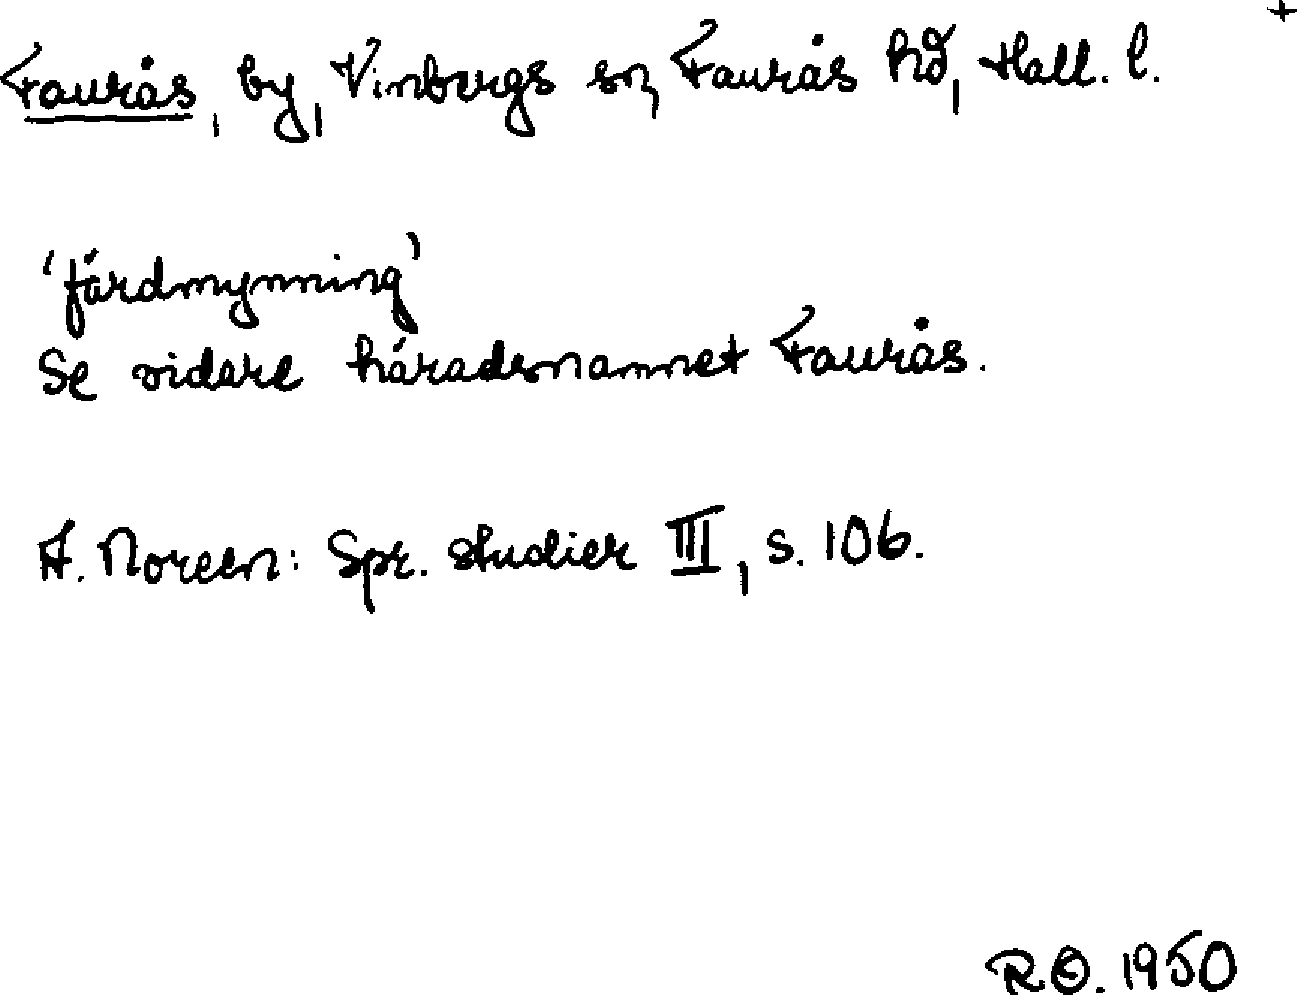 +
Faurås, by, Vinbergs sn, Faurås hd, Hall. l.
'färdmynning'
Se vidare häradsnamnet Faurås.
A. Noreen: Spr. studier III, s. 106.
R.Ö. 1950